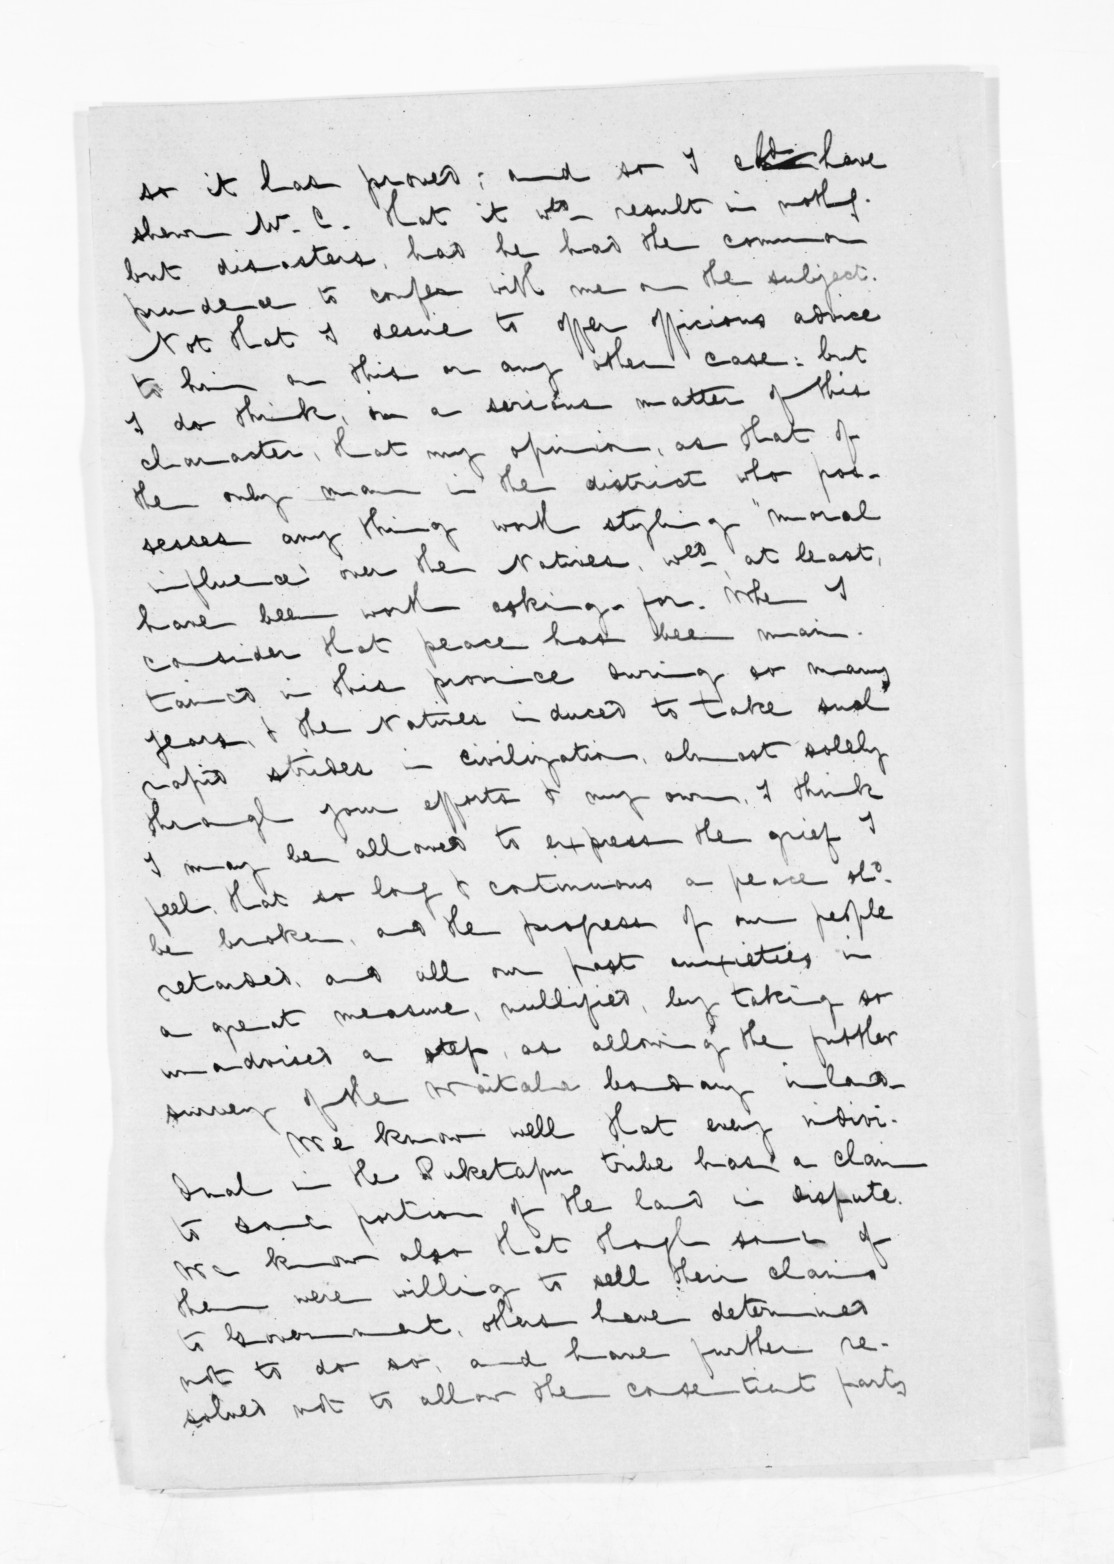 so it has proved; and so I cld have
shewn Mr. C. that it wld result in nothg.
but disasters, had he had the common
prudence to confer with me on the subject.
Not that I desire to offer officious advice
to him on this or any other case: but
I do think, on a serious matter of this
character, that my opinion, as that of
the only man in the district who pos-
sesses any thing worth styling "moral
influence" over the Natives, wld, at least,
have been worth asking-for. When I
consider that peace has been main-
tained in this province during so many
years, & the Natives induced to take such
rapid strides in civilization, almost solely
through your efforts & my own, I think
I may be allowed to express the grief I
feel, that so long & continuous a peace shd.
be broken, and the progress of our people
retarded, and all our past anxieties in
a great measure, nullified, by taking so
unadvised a step, as allowing the further
survey of the Waitaha boundary inland-
We know well that every indivi-
dual in the Puketapu tribe has a claim
to some portion of the land in dispute.
We know also that though some of
them were willing to sell their claims
to Government, others have determined
not to do so, and have further re-
solved not to allow the consentient party